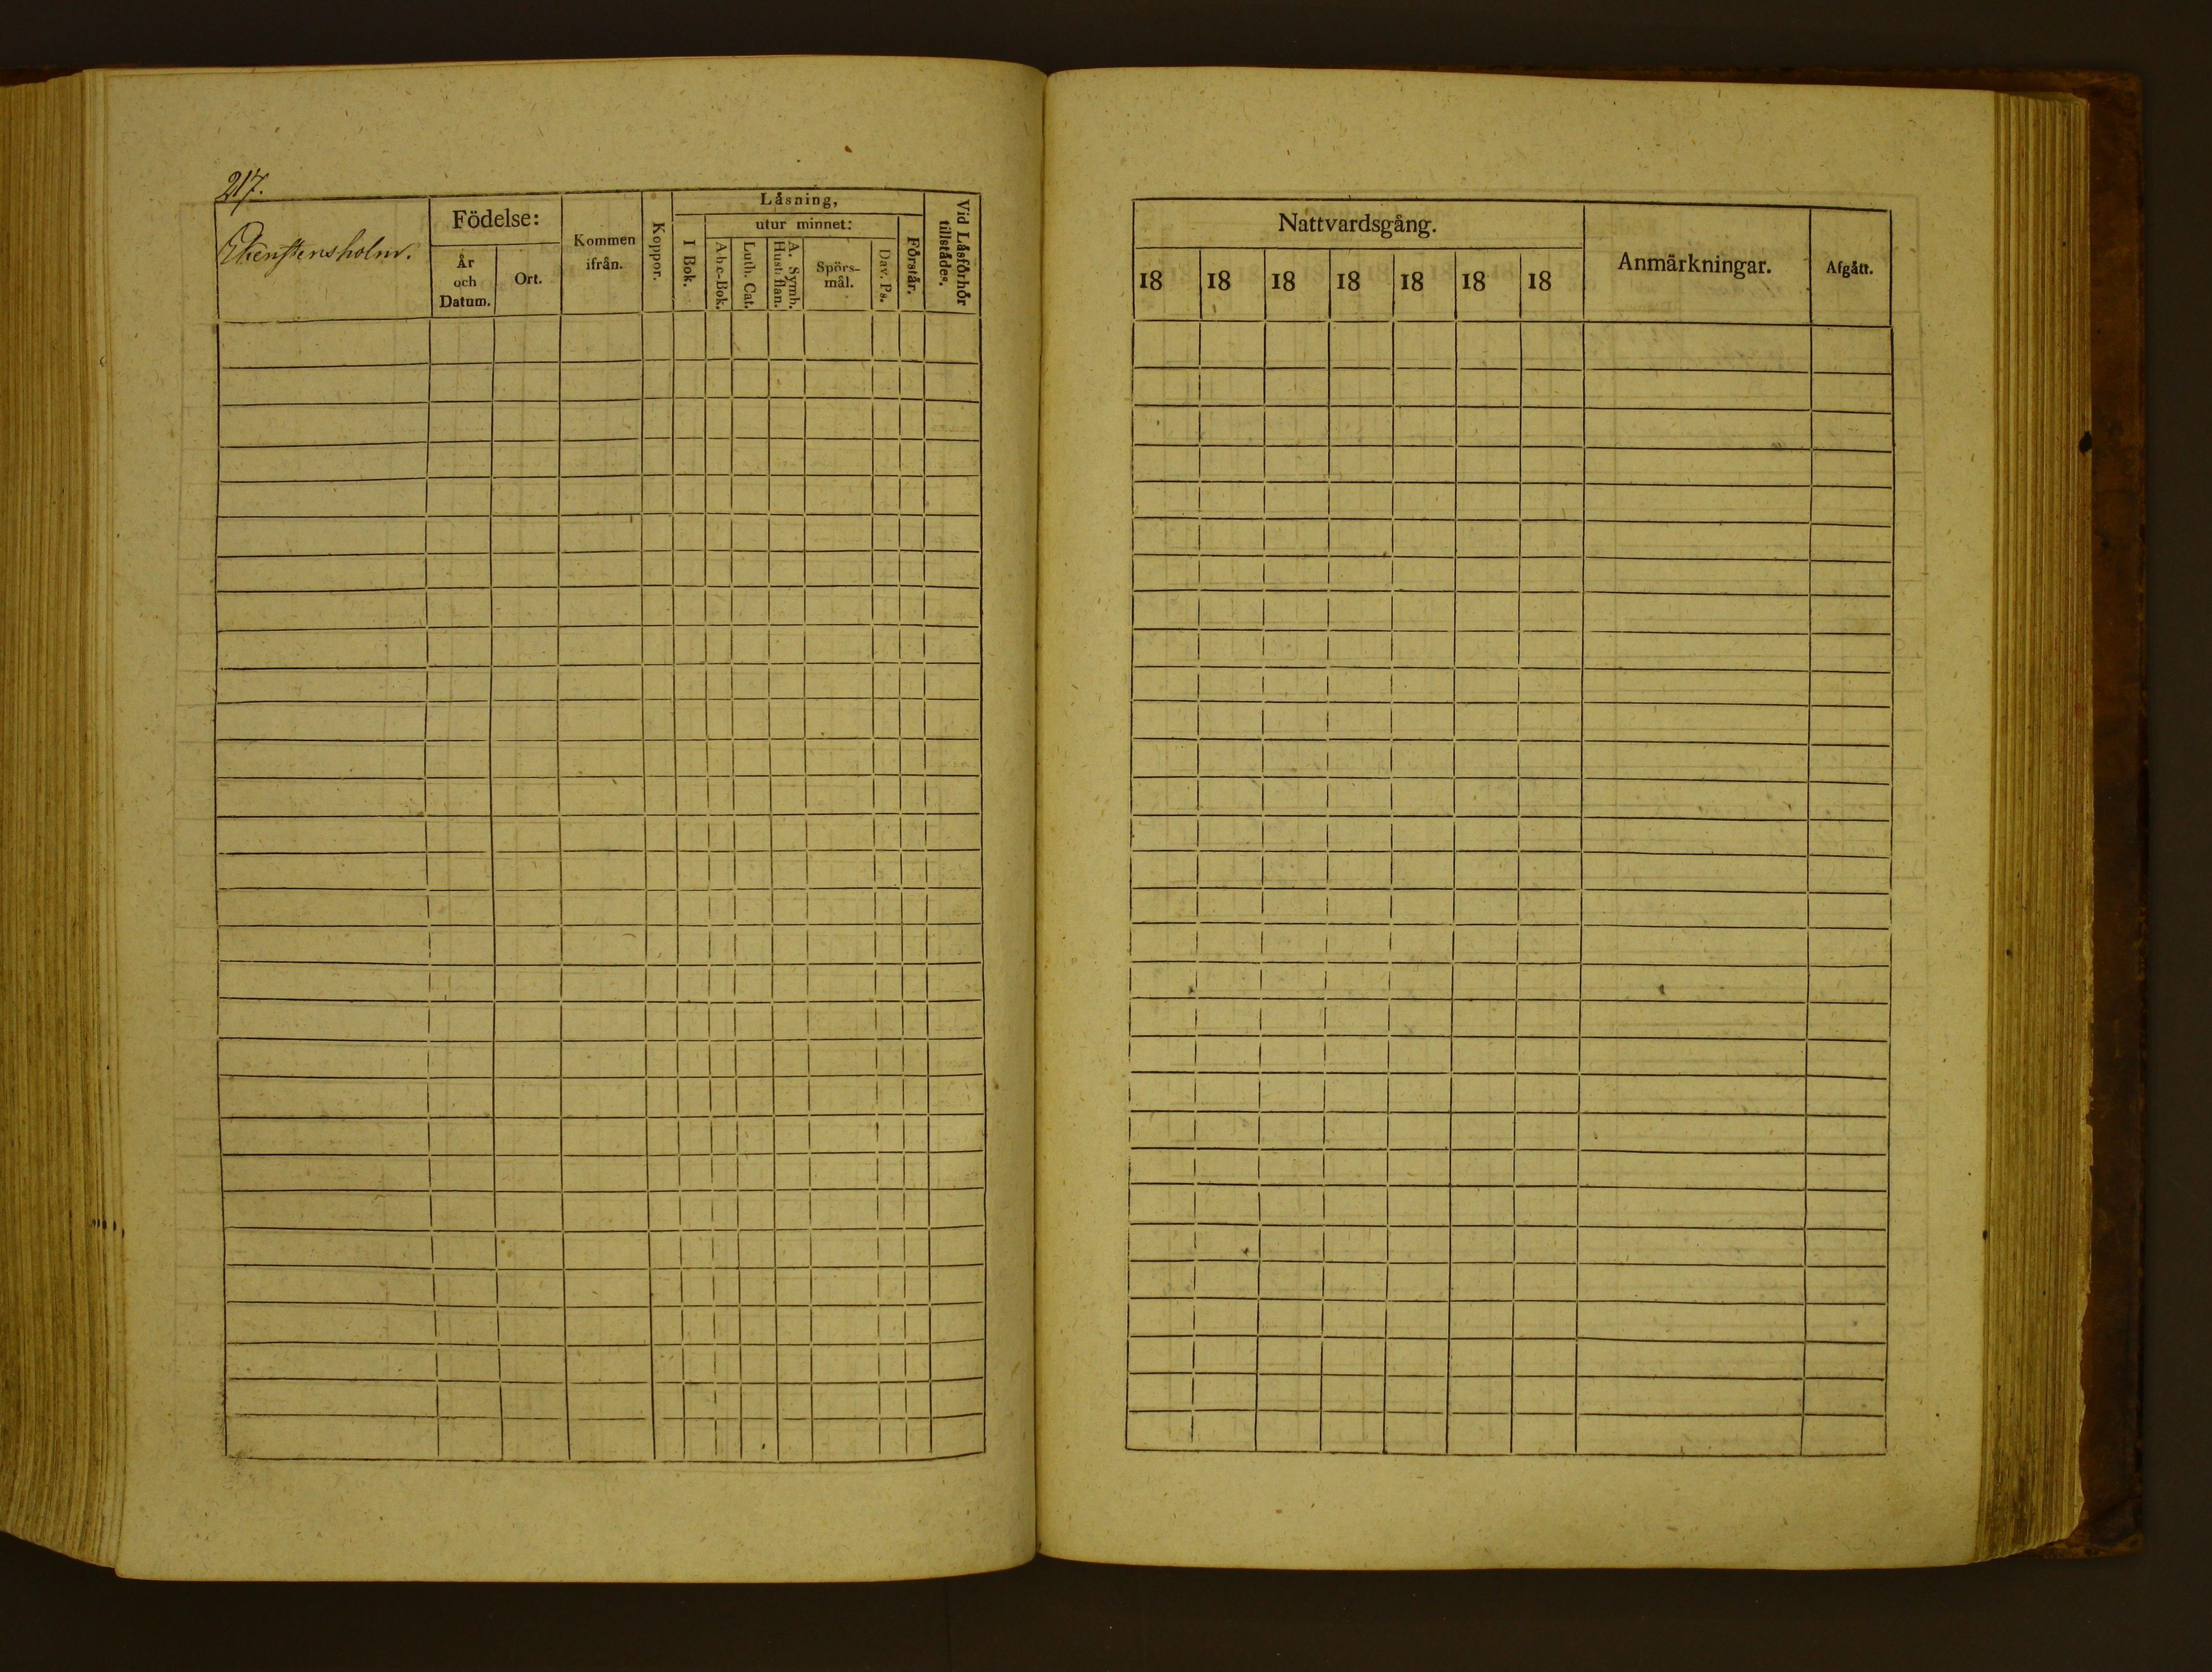 217.
Ekenstensholm.
Födelse:
År
och
Datum.
Ort.
Kommen
ifrån.
Koppor.
Låsning,
I Bok.
utur minnet:
A-b-c-Bok.
Luth. Cat.
A. Symb.
Hust: flan.
Spörs-
mål.
Dav. Ps.
Förstår.
Vid Låsförhör
tillstådes.
Nattvardsgång.
18 18 18 18 18 18 18
Anmärkningar.
Afgått.